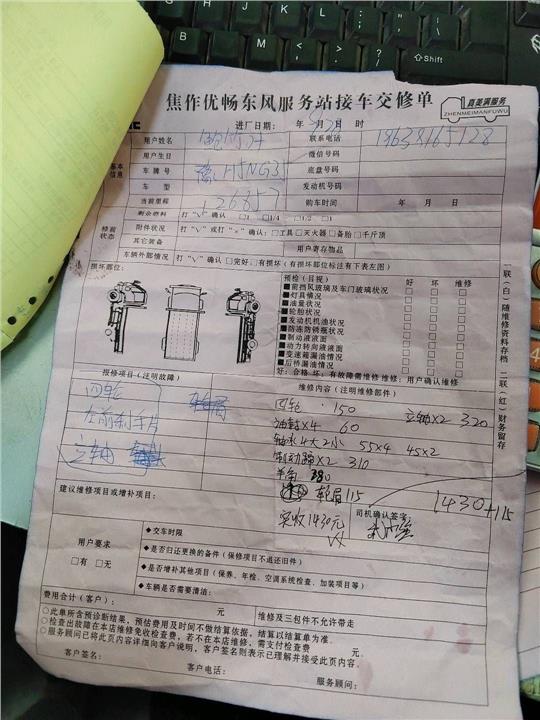 焦作优畅东风服务站接车交修单
真美满服务
ZHENMEIMANFUWU
进厂日期： 年 月 日 时
基本信息
用户姓名 联系电话 18638165128
用户生日 微信号码
车牌号 豫H5NG35 底盘号码
车 型 发动机号码
当前里程 126857 购车时间 年 月 日
修前状态
剩余燃料 打"√"确认 □1 □1/4 □1/2 □1
附件状况 打"√"或打"×"确认：□工具□灭火器□备胎□千斤顶
其它装备 用户寄存物品
车辆外部情况 打"√"确认□完好□有损坏（有损坏部位标注有下表左图）
损坏部位：
预检（目视） 好 坏 维修
■前挡风玻璃及车门玻璃状况 □ □ □
■灯具情况 □ □ □
■油量状况 □ □ □
■轮胎状况 □ □ □
■发动机机油状况 □ □ □
■防冻防锈瓶状况 □ □ □
■制动液液面 □ □ □
■动力转向液液面 □ □ □
■变速箱漏油情况 □ □ □
■后桥漏油情况 □ □ □
好：合格 坏：有故障需维修 维修：用户确认维修
一联（白）随维修资料存档 二联（红）财务留存
报修项目（注明故障） 维修内容（注明维修部件）
四轮
左前刹车片
立轴
四轮 150 立轴×2 320
油封×4 60
轴承4大2小 55×4 45×2
制动蹄×2 310
羊角 380
轮眉 115
实收1430元
1430+115
建议维修项目或增补项目：
司机确认签字
用户要求
□有 □无
◆交车时限
◆是否归还更换的备件（保修项目不退还旧件）
◆是否增补其他项目（保养、年检、空调系统检查、加装项目等）
◆车辆是否需要清洁：
费用合计（客户）： 元 维修及三包件不允许带走
○此单所含预诊断结果，预估费用及时间不做结算依据，结算以结算单为准.
○检查出故障在本店维修免收检查费，若不在本店维修，需支付检查费 元
○服务顾问已将此页内容详细向客户说明，客户签名则表示已理解并接受此页内容.
客户签名： 客户电话： 服务顾问：
Shift